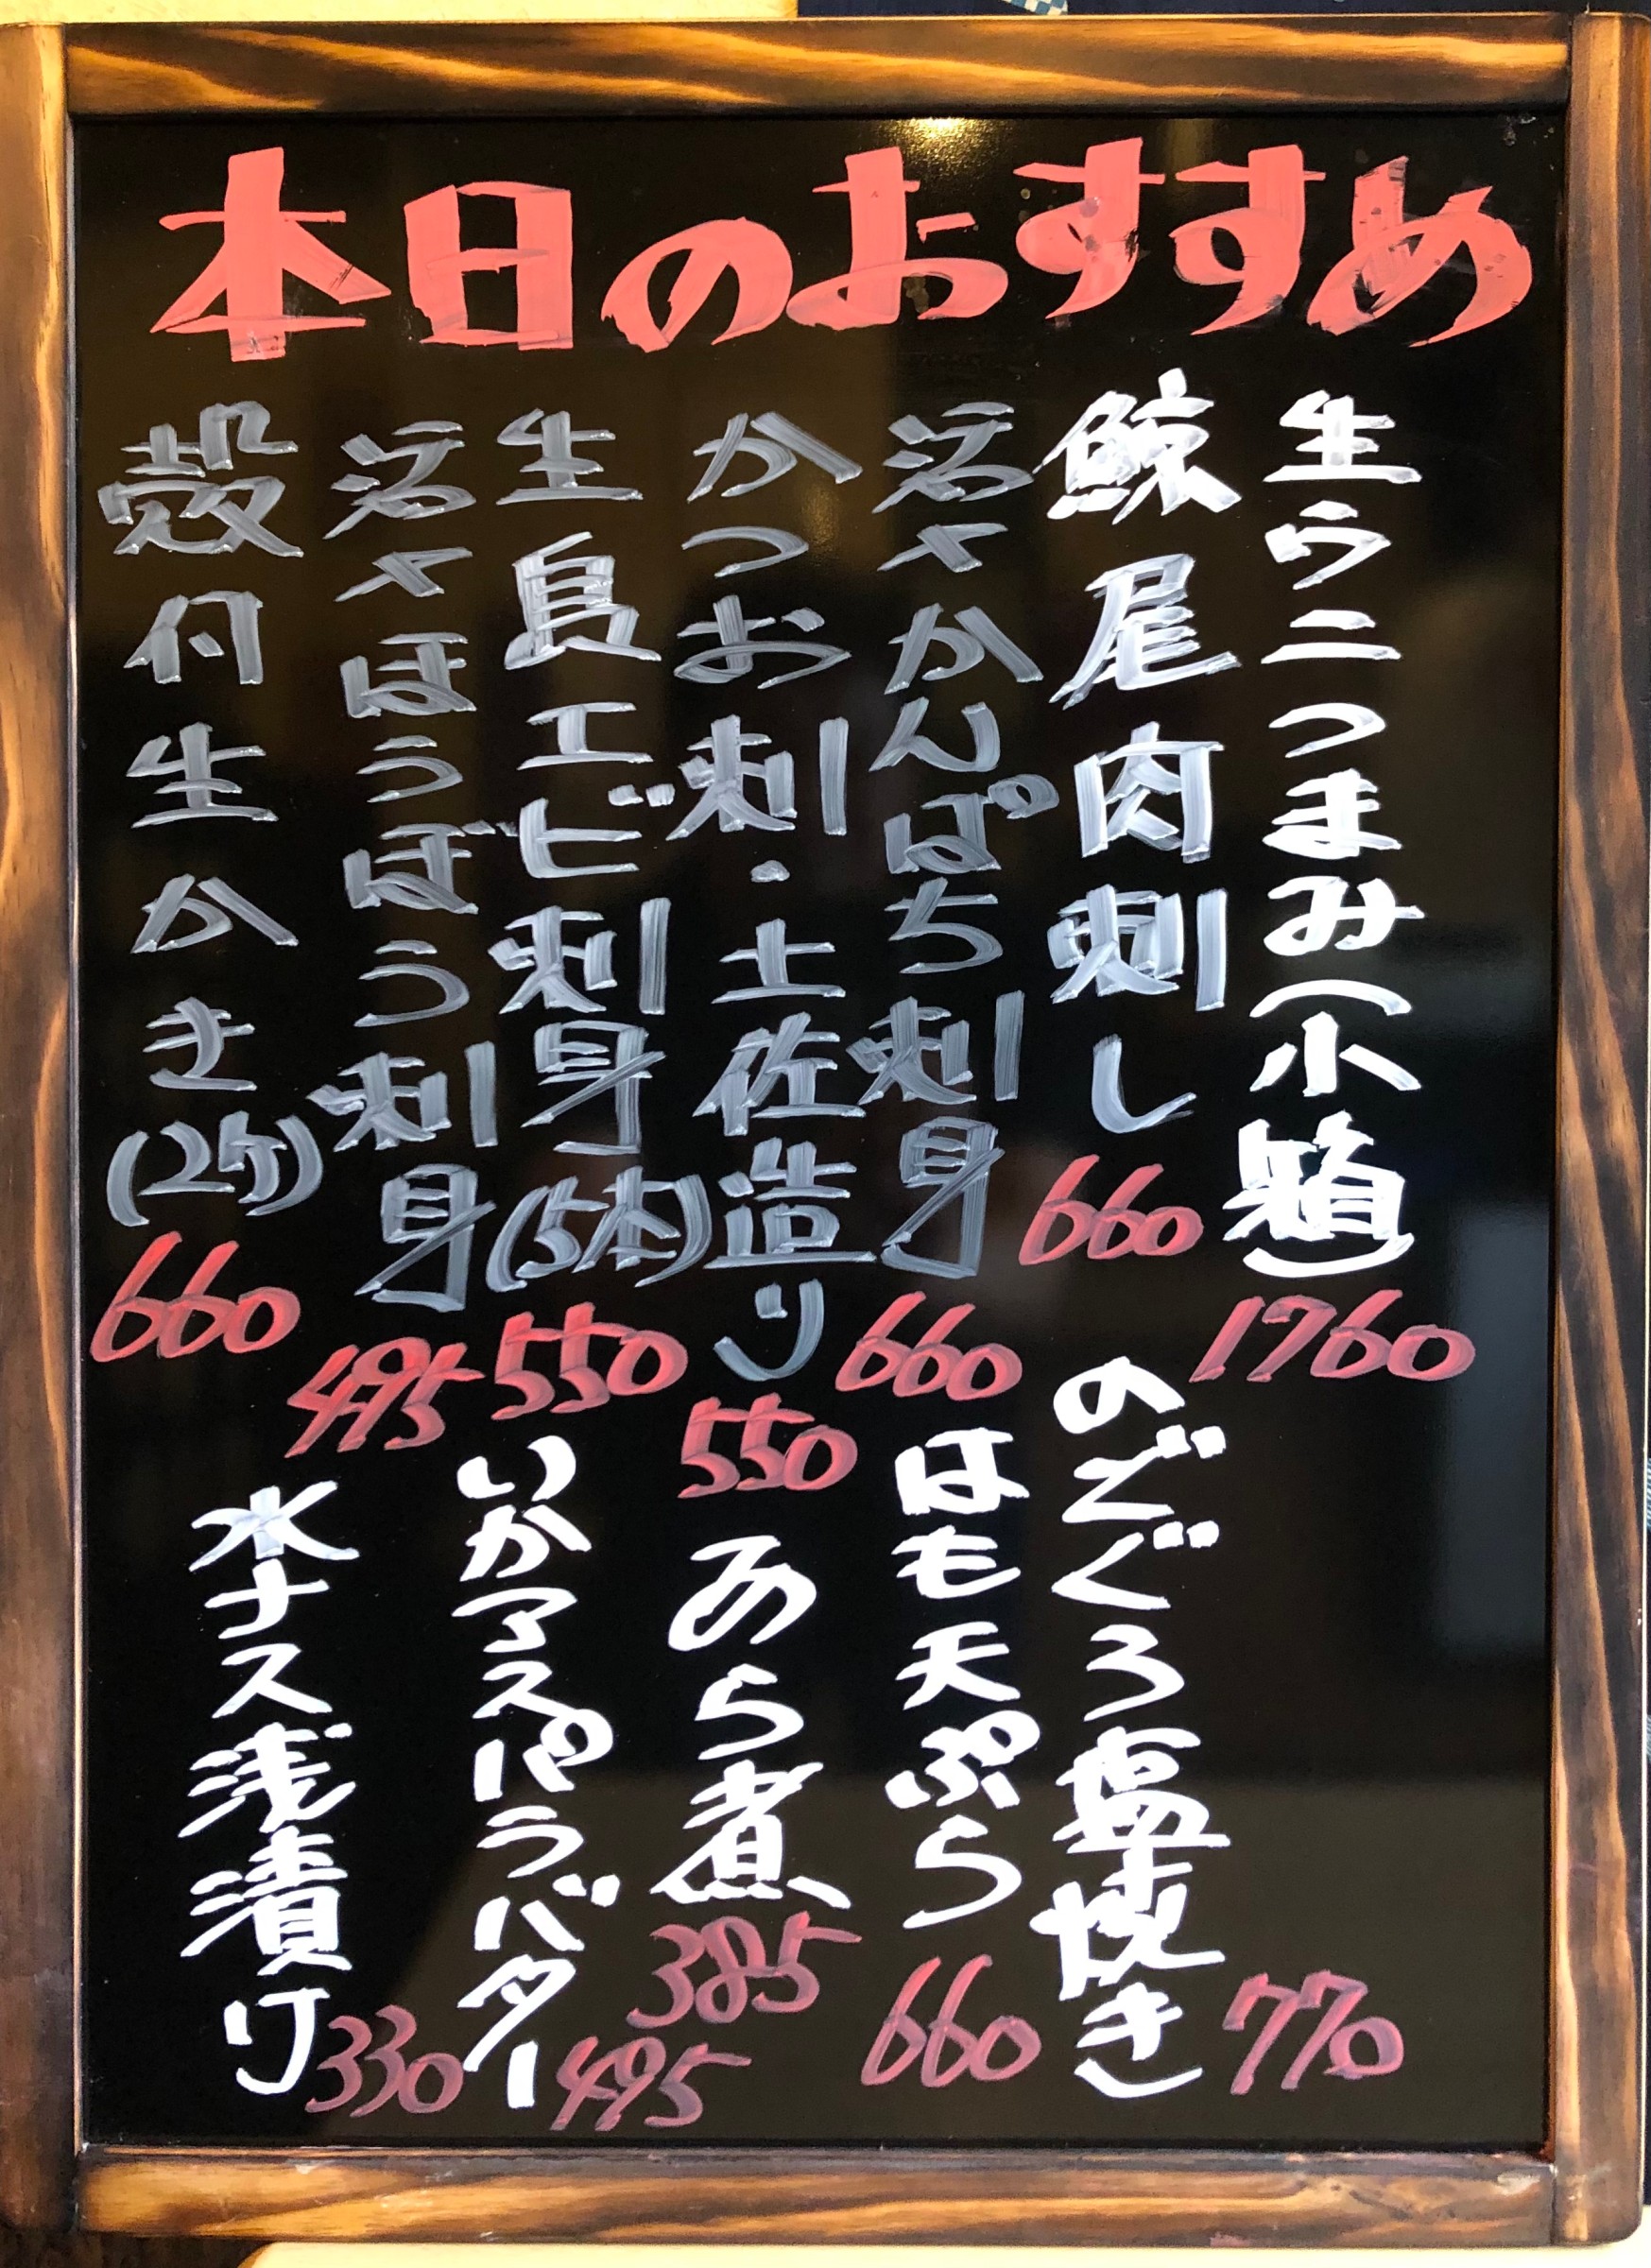 本日のおすすめ
生ウニつまみ(小)
1760
鯨尾肉刺し
660
活〆かんぱち刺身
660
かつお刺・土佐造り
550
生島エビ刺身(5本)
550
活〆ほうぼう刺身
495
殻付生かき(2ケ)
660
のどぐろ塩焼き
770
はも天ぷら
660
あら煮
385
いかアスパラバター
495
水ナス浅漬け
330